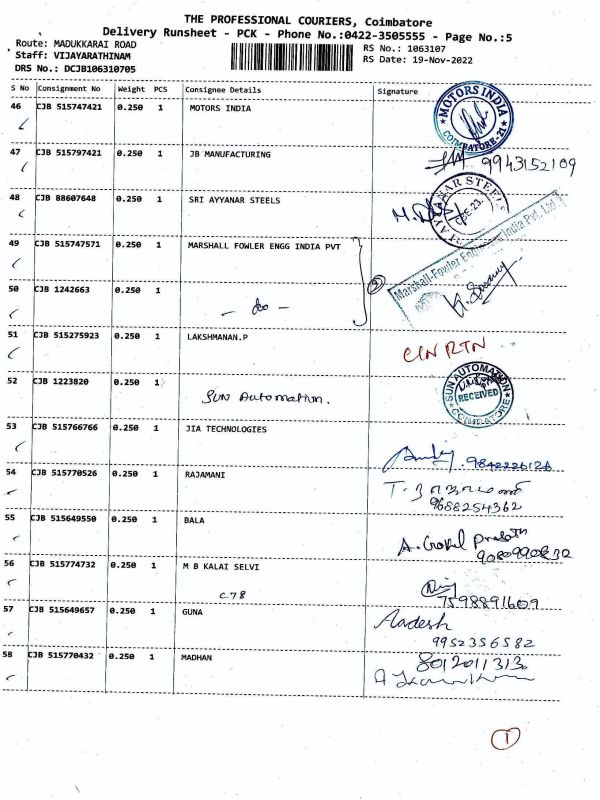 THE PROFESSIONAL COURIERS, Coimbatore
Delivery Runsheet - PCK - Phone No.:0422-3505555 - Page No.:5
Route: MADUKKARAI ROAD RS No.: 1063107
Staff: VIJAYARATHINAM RS Date: 19-Nov-2022
DRS No.: DCJB106310705
S No Consignment No Weight PCS Consignee Details Signature
46 CJB 515747421 0.250 1 MOTORS INDIA
MOTORS INDIA COIMBATORE-21
47 CJB 515797421 0.250 1 JB MANUFACTURING 9943152109
48 CJB 88607648 0.250 1 SRI AYYANAR STEELS
49 CJB 515747571 0.250 1 MARSHALL FOWLER ENGG INDIA PVT
Marshall-Fowler India Pvt. Ltd
50 CJB 1242663 0.250 1 - do - 2
51 CJB 515275923 0.250 1 LAKSHMANAN.P CIN RTN
52 CJB 1223820 0.250 1 SUN Automation.
SUN AUTOMATION RECEIVED COIMBATORE
53 CJB 515766766 0.250 1 JIA TECHNOLOGIES
54 CJB 515770526 0.250 1 RAJAMANI
9688254362
55 CJB 515649550 0.250 1 BALA A. Gokul Prasath
56 CJB 515774732 0.250 1 M B KALAI SELVI
C78 7598891609
57 CJB 515649657 0.250 1 GUNA Aadesh
9952356582
58 CJB 515770432 0.250 1 MADHAN 8012011313
1